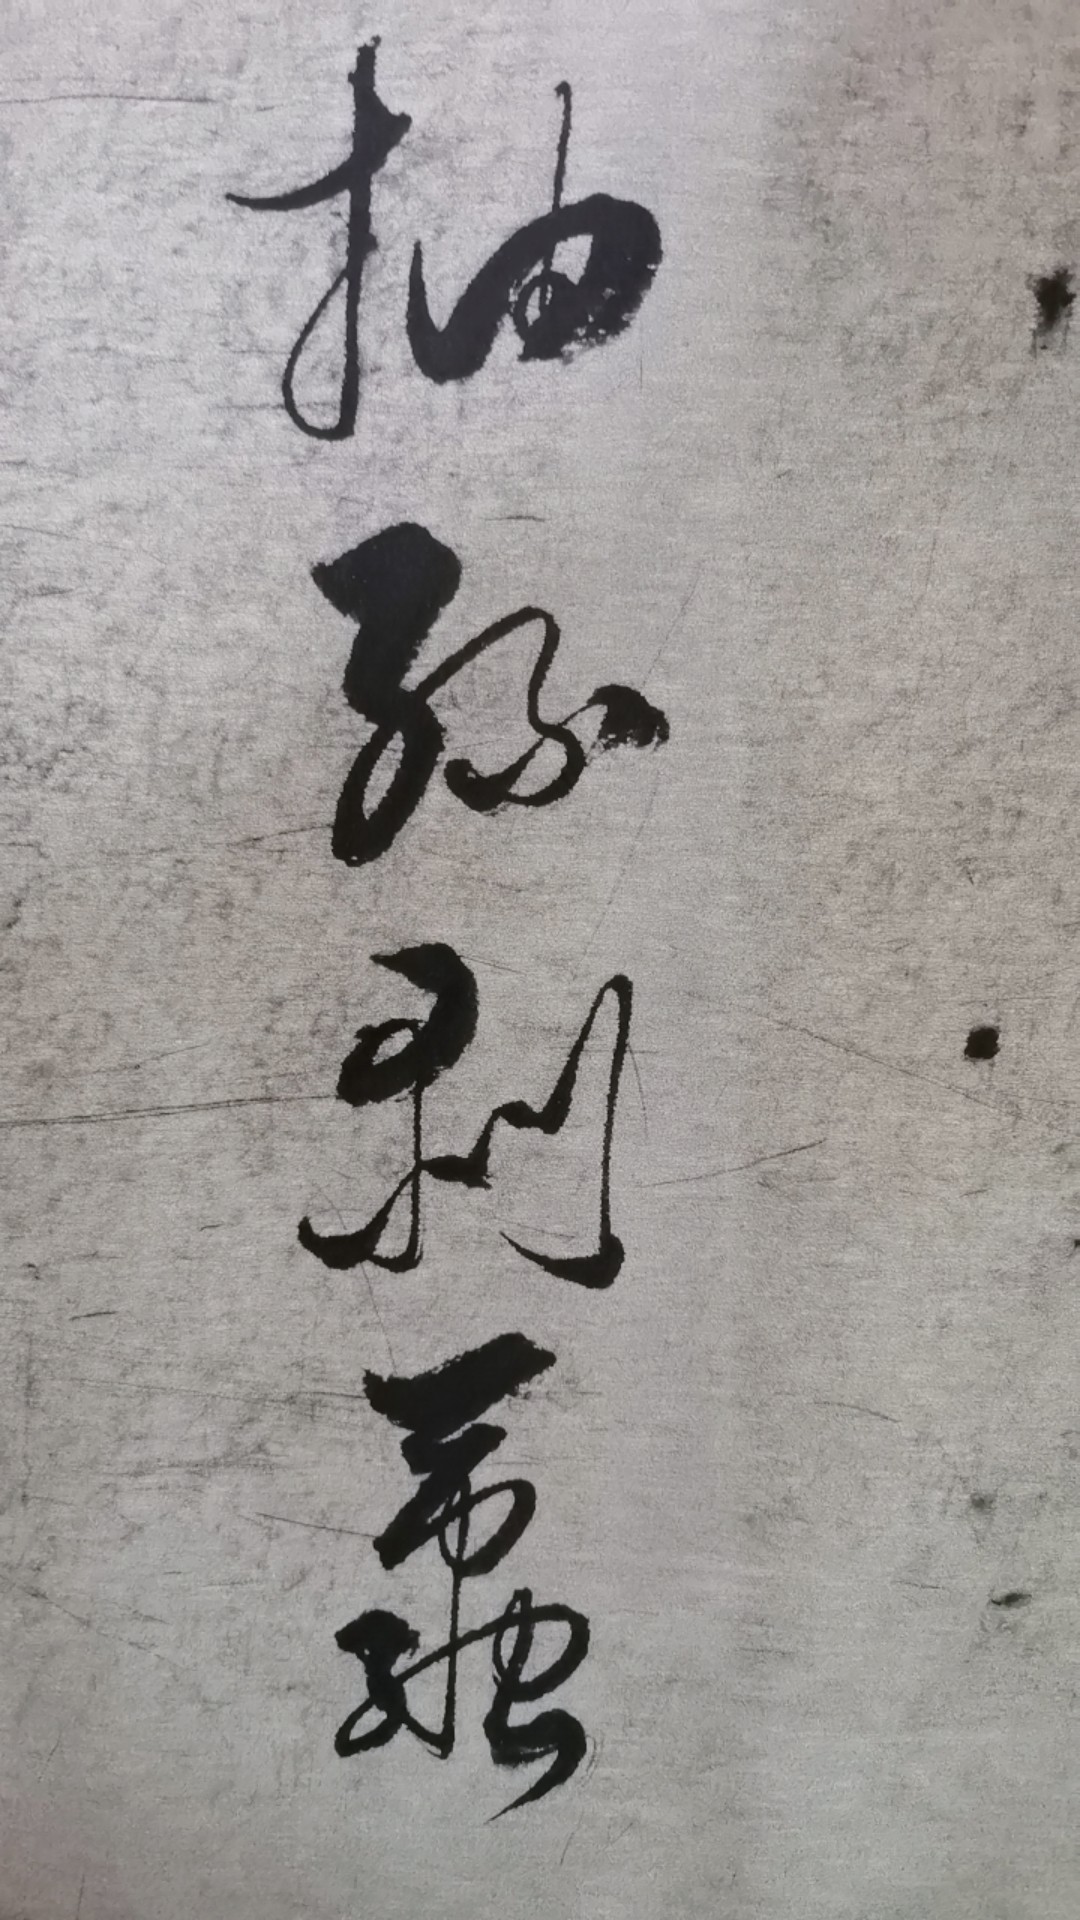 抽絲剝繭